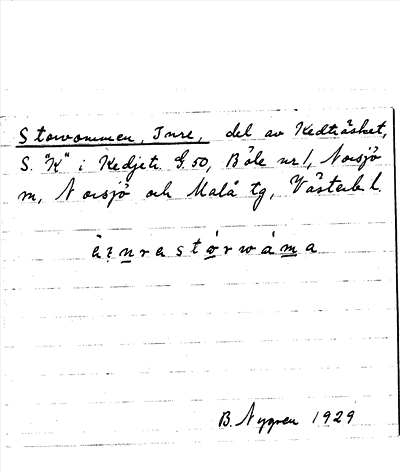 Storvommen, Inre, del av Kedträsket,
S. "K" i Kedjetr. G. 50, Böle nr 1, Norsjö
m, Norsjö och Malå tg, Västerb l.
inrastòrwáma
B. Nygren 1929